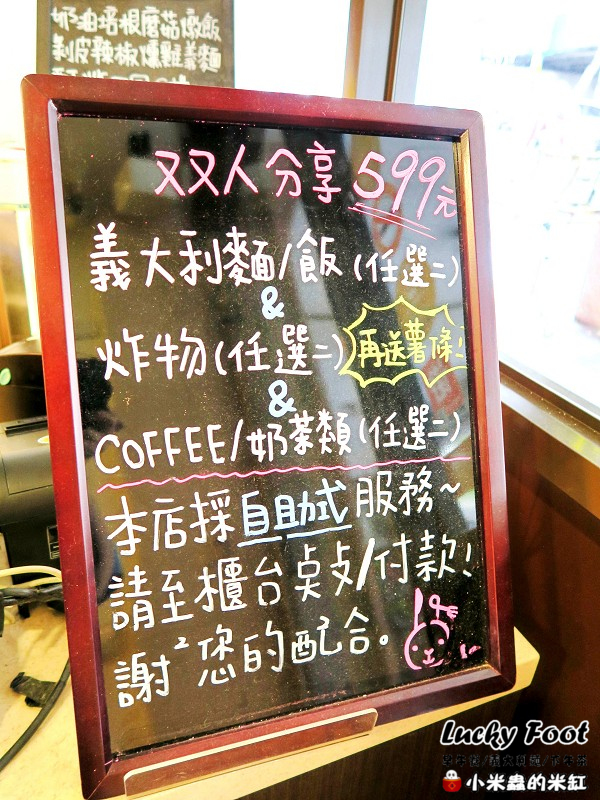 奶油培根磨菇燉飯
剝皮辣椒燻雞義麵
双双人分享599元
義大利麵/飯(任選二)
&
炸物(任選二)
再送薯條!
&
COFFEE/奶茶類(任選二)
本店採自助式服務~
請至櫃台點/付款!
謝²您的配合。
Lucky Foot
小米蟲的米缸